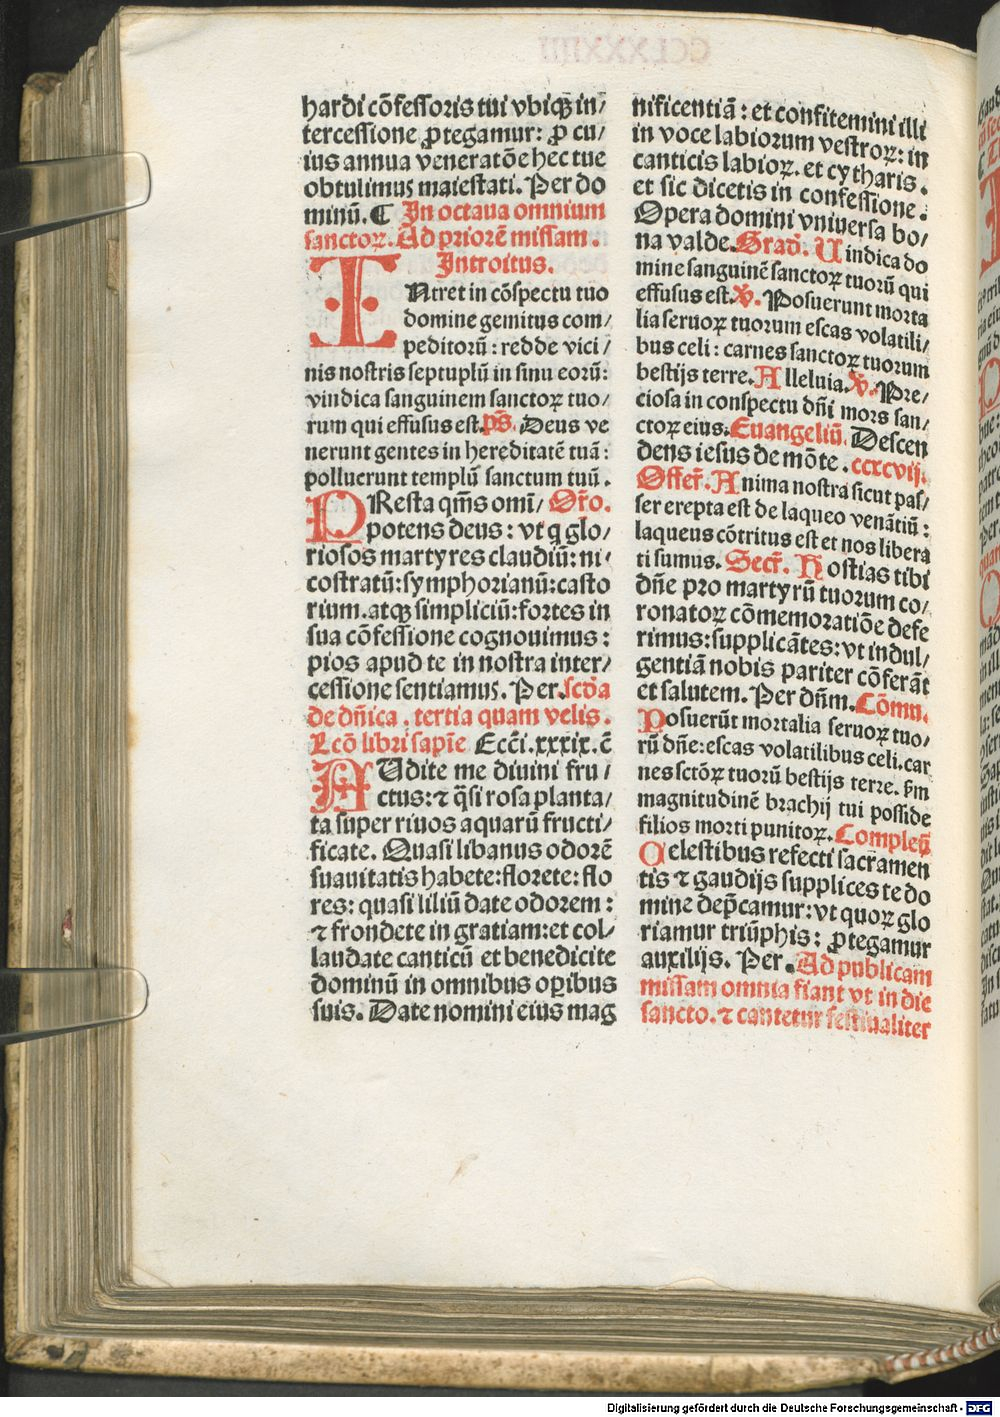 hardi cõfessoris tui vbiqꝫ in/
tercessione ꝓtegamur: ꝓ cu/
ius annua veneratõe hec tue
obtulimus maiestati. Per do
minũ. ¶ In octaua omnium
sanctoꝝ. Ad priorẽ missam.
Introitus.
INtret in cõspectu tuo
domine gemitus com/
peditorũ: redde vici/
nis nostris septuplũ in sinu eorũ:
vindica sanguinem sanctoꝝ tuo/
rum qui effusus est. p̃s. Deus ve
nerunt gentes in hereditatẽ tuã:
polluerunt templũ sanctum tuũ.
PResta q̃ms omĩ/ Or̃o.
potens deus: vt q glo/
riosos martyres claudiũ: ni/
costratũ: symphorianũ: casto
rium. atqꝫ simpliciũ: fortes in
sua cõfessione cognouimus:
pios apud te in nostra inter/
cessione sentiamus. Per. scd̃a
de dñica. tertia quam velis.
Lcõ libri sapiẽ Ecc̃i. xxxix. c̃
AUdite me diuini fru/
ctus: ⁊ q̃si rosa planta/
ta super riuos aquarũ fructi/
ficate. Quasi libanus odorẽ
suauitatis habete: florete: flo
res: quasi liliũ date odorem:
⁊ frondete in gratiam: et col/
laudate canticũ et benedicite
dominũ in omnibus oꝑibus
suis. Date nomini eius mag
nificentiã: et confitemini illi
in voce labiorum vestroꝝ: in
canticis labioꝝ. et cytharis.
et sic dicetis in confessione:
Opera domini vniuersa bo/
na valde. Grad̃. Uindica do
mine sanguinẽ sanctoꝝ tuorũ qui
effusus est. ℣. Posuerunt morta
lia seruoꝝ tuorum escas volatili/
bus celi: carnes sanctoꝝ tuorum
bestijs terre. Alleluia. ℣. Pre/
ciosa in conspectu dñi mors san/
ctoꝝ eius. Euangeliũ. Descen
dens iesus de mõte. ccxcvij.
Offer̃. Anima nostra sicut pas/
ser erepta est de laqueo venãtiũ:
laqueus cõtritus est et nos libera
ti sumus. Secr̃. Hostias tibi
dñe pro martyrũ tuorum co/
ronatoꝝ cõmemoratiõe defe
rimus: supplicãtes: vt indul/
gentiã nobis pariter cõferãt
et salutem. Per dñm. Cõmu.
Posuerũt mortalia seruoꝝ tuo/
rũ dñe: escas volatilibus celi. car
nes sctõꝝ tuorũ bestijs terre. s̃m
magnitudinẽ brachij tui posside
filios morti punitoꝝ. Compleñ
Celestibus refecti sacramen
tis ⁊ gaudijs supplices te do
mine dep̃camur: vt quoꝝ glo
riamur triũphis: ꝓtegamur
auxilijs. Per. Ad publicam
missam omnia fiant vt in die
sancto. ⁊ cantetur festiualiter
Digitalisierung gefördert durch die Deutsche Forschungsgemeinschaft - DFG